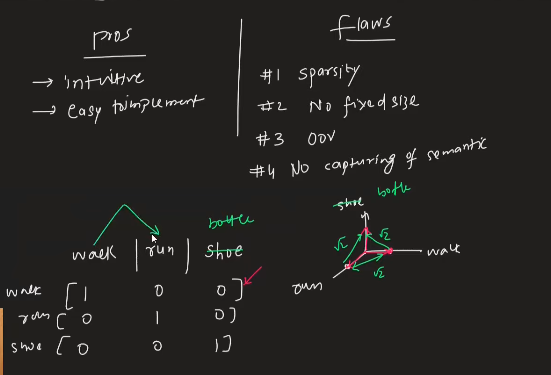 pros
→ intuitive
→ easy to implement
flaws
#1 sparsity
#2 No fixed size
#3 OOV
#4 No capturing of semantic
bottle
walk | run | shoe
walk [ 1 0 0 ]
run [ 0 1 0 ]
shoe [ 0 0 1 ]
shoe bottle
√2 √2
walk
√2
run